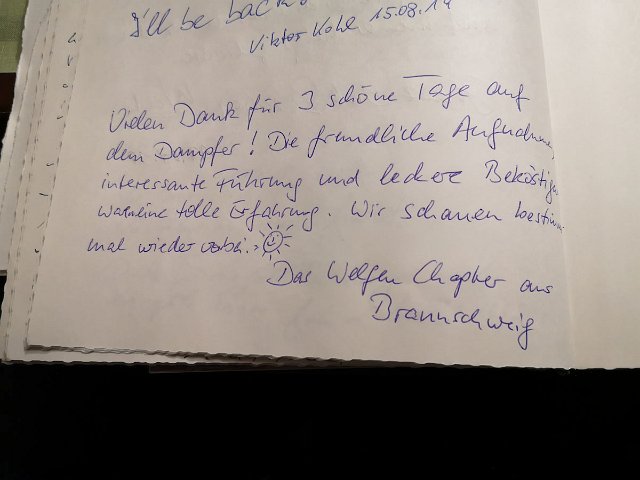 I'll be back
Viktor Kohl 15.08.19
Vielen Dank für 3 schöne Tage auf
dem Dampfer! Die freundliche Aufnahme,
interessante Führung und leckere Beköstigu
war eine tolle Erfahrung. Wir schauen bestim
mal wieder vorbei.
Das Welfen Chapter aus
Braunschweig